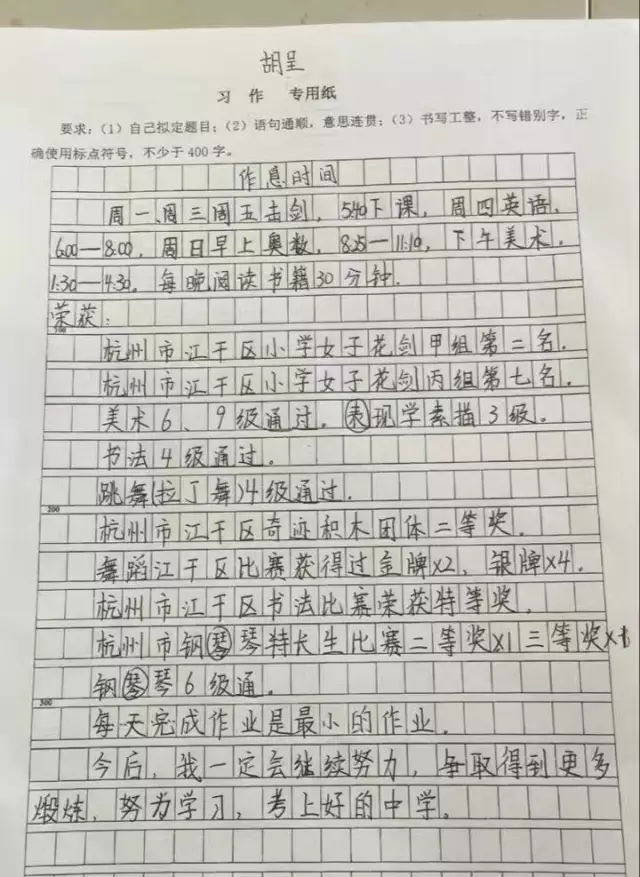 胡呈
习 作 专用纸
要求：（1）自己拟定题目；（2）语句通顺，意思连贯；（3）书写工整，不写错别字，正
确使用标点符号，不少于 400 字。
作息时间
周一周三周五击剑，5:40下课，周四英语，
6:00—8:00，周日早上奥数，8:25—11:10，下午美术，
1:30—4:30。每晚阅读书籍30分钟。
荣获：
100
杭州市江干区小学女子花剑甲组第二名。
杭州市江干区小学女子花剑丙组第七名。
美术6、9级通过。表现学素描3级。
书法4级通过。
跳舞(拉丁舞)4级通过。
200
杭州市江干区奇迹积木团体二等奖。
舞蹈江干区比赛获得过金牌×2，银牌×4。
杭州市江干区书法比赛荣获特等奖。
杭州市钢琴特长生比赛二等奖×1三等奖×
钢琴6级通。
300
每天完成作业是最小的作业。
今后，我一定会继续努力，争取得到更多
煅炼，努为学习，考上好的中学。